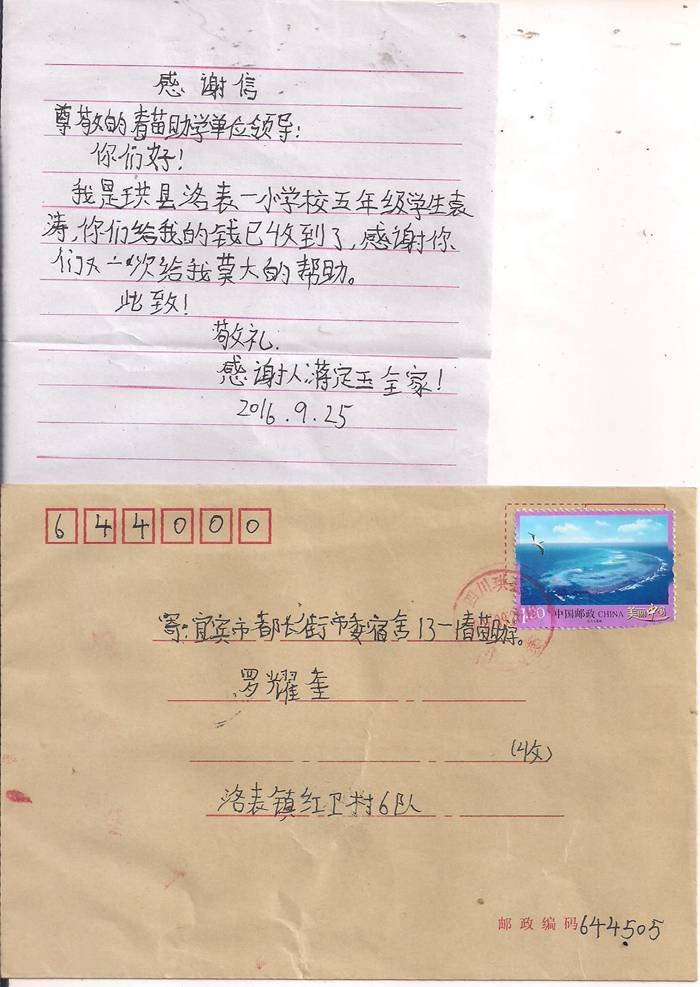 感谢信
尊敬的春苗助学单位领导:
你们好!
我是珙县洛表一小学校五年级学生袁
涛,你们给我的钱已收到了,感谢你
们又一次给我莫大的帮助。
此致!
敬礼.
感谢人:蒋定玉全家!
2016.9.25
644000
1.20 中国邮政 CHINA 美丽中国
四川珙
寄:宜宾市都长街市委宿舍13-1春苗助学。
罗耀奎
(收)
洛表镇红卫村6队
邮政编码644505